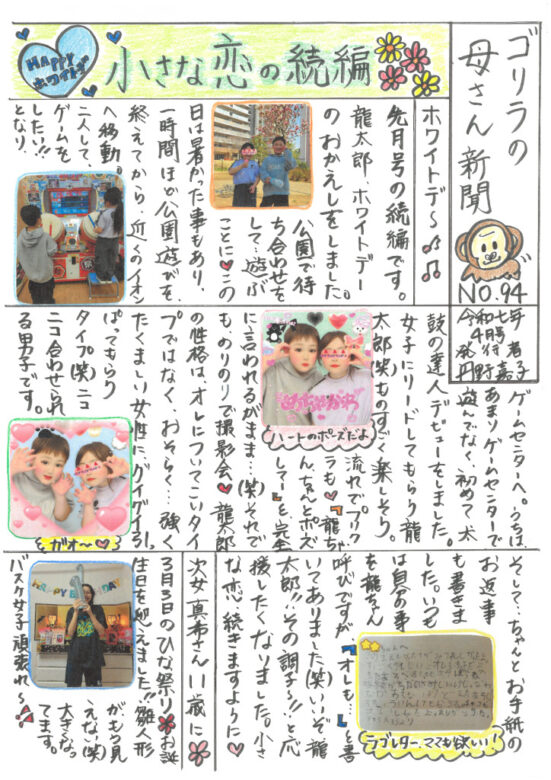 ゴリラの
母さん新聞
NO.94
令和七年
4月号
発行者
丹野嘉子
HAPPY
ホワイトデー
小さな恋の続編
ホワイトデー♪♫
先月号の続編です。
龍太郎、ホワイトデー
のおかえしをしました。
公園で待
ち合わせを
して、遊ぶ
ことに♥この
日は暑かった事もあり、
一時間ほど公園遊びを
終えてから近くのイオン
へ移動。
二人して、
ゲームを
したい!!
となり、
ゲームセンターへ。うちは、
あまりゲームセンターで
遊んでなく、初めて太
鼓の達人デビューをしました。
女子にリードしてもらう龍
太郎(笑)ものすごく楽しそう。
流れでプリク
ラも♥『龍ちゃ
ん、ちゃんとポーズ
して〜』と、完全
に言われるがまま…(笑)それで
も、のりのりで撮影会♥龍太郎
の性格は、オレについてこいタイ
プではなく、おそらく…強く
たくましい女性にグイグイ引っ
ぱってもらう
タイプ(笑)ニコ
ニコ合わせられ
る男子です。
ハートのポーズだよ
ガオ〜♥
そして、ちゃんとお手紙の
お返事
も書きま
した。いつも
は自分の事
を龍ちゃん
呼びですが『オレも…』と書
いてありました(笑)いいぞ、龍
太郎!!その調子〜!!と応
援したくなりました。小さ
な恋、続きますように♥
ラブレター、ママも欲しい!
次女真希さん11歳に
3月3日のひな祭りお誕
生日を迎えました!!雛人形
がもう見
えない(笑)
大きくなっ
てます。
バスケ女子頑張れ〜